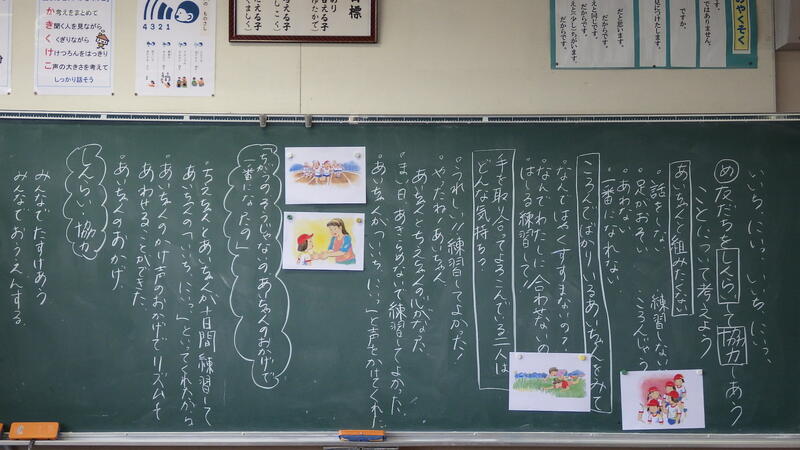 いち、にいっ、いち、にいっ、
め 友だちをしんらいして協力しあう
ことについて考えよう
あいちゃんと組みたくない
・話してない 練習しない
・足がおそい ころんじゃう
・あわない
・一番になれない
ころんでばかりいるあいちゃんをみて
・なんではやくすすまないの?
・なんでわたしに合わせないの
・はしる練習して!
手を取り合ってよろこんでいる二人は
どんな気持ち?
・うれしい!練習してよかった!
・やったね、あいちゃん
・あいちゃんとちえちゃんの心がなった
・まい日あきらめないで練習してよかった
・あいちゃんが「いち、にいっ」と声をかけてくれた
ちがうの、そうじゃないの。あいちゃんのおかげで
一番になったの」
・ちえちゃんとあいちゃんが十日間練習して
あいちゃんの「いち、にいっ」といってくれたから
・あいちゃんのかけ声のおかげでリズムを
あわせることができた。
・あいちゃんのおかげ。
しんらい・協力
みんなでたすけあう
みんなでおうえんする。
考えをまとめて
き聞く人を見ながら
くくぎりながら
けけつろんをはっきり
こ声の大きさを考えて
しっかり話そう
ものさし
4 3 2 1
目標
みやくそく
ではありません。
ですか。
見につけたします。
だと思います。
だからです。
えと同じです。
だからです。
えと少しちがいます。
だからです。